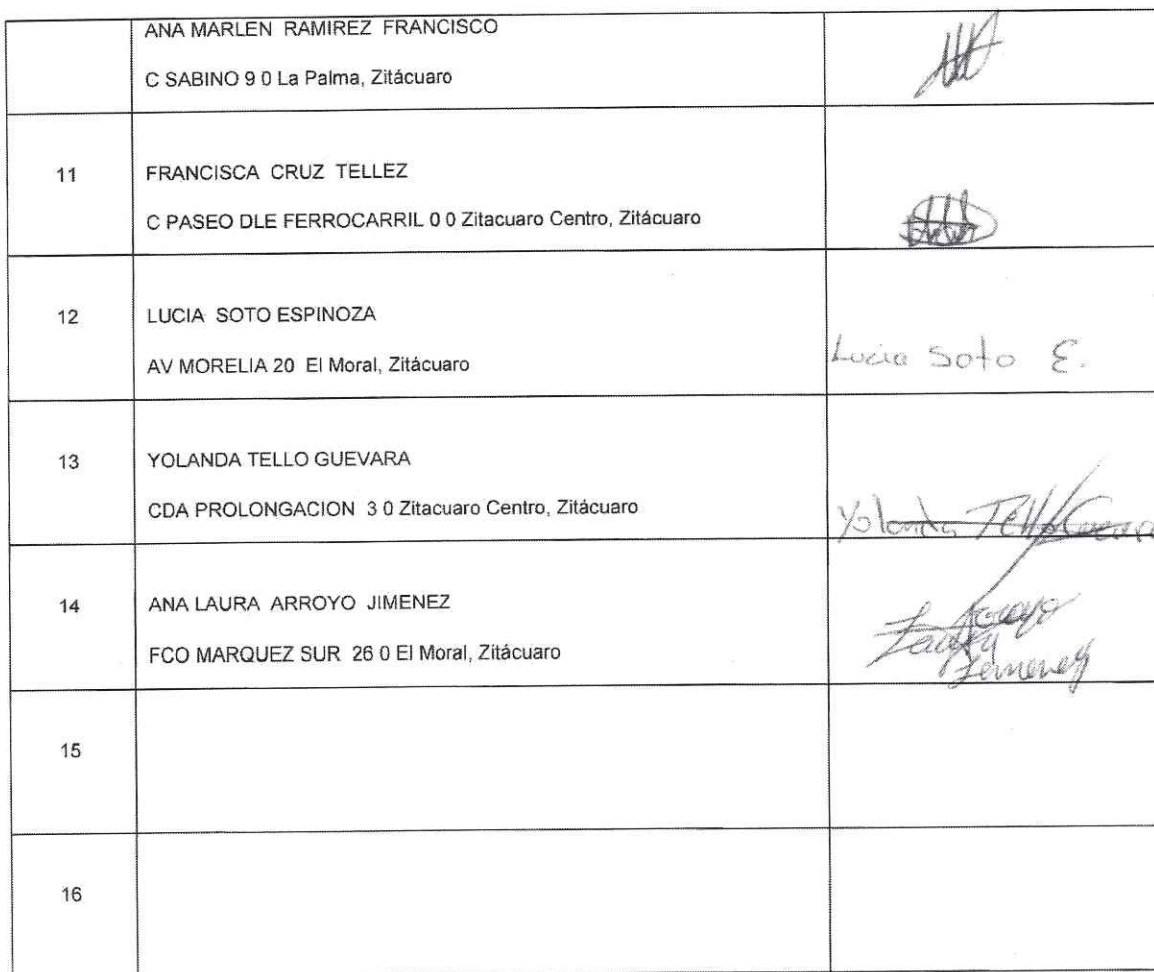 ANA MARLEN RAMIREZ FRANCISCO
C SABINO 9 0 La Palma, Zitácuaro
11
FRANCISCA CRUZ TELLEZ
C PASEO DLE FERROCARRIL 0 0 Zitacuaro Centro, Zitácuaro
12
LUCIA SOTO ESPINOZA
AV MORELIA 20 El Moral, Zitácuaro
Lucia Soto E.
13
YOLANDA TELLO GUEVARA
CDA PROLONGACION 3 0 Zitacuaro Centro, Zitácuaro
Yolanda Tello
14
ANA LAURA ARROYO JIMENEZ
FCO MARQUEZ SUR 26 0 El Moral, Zitácuaro
Arroyo
15
16